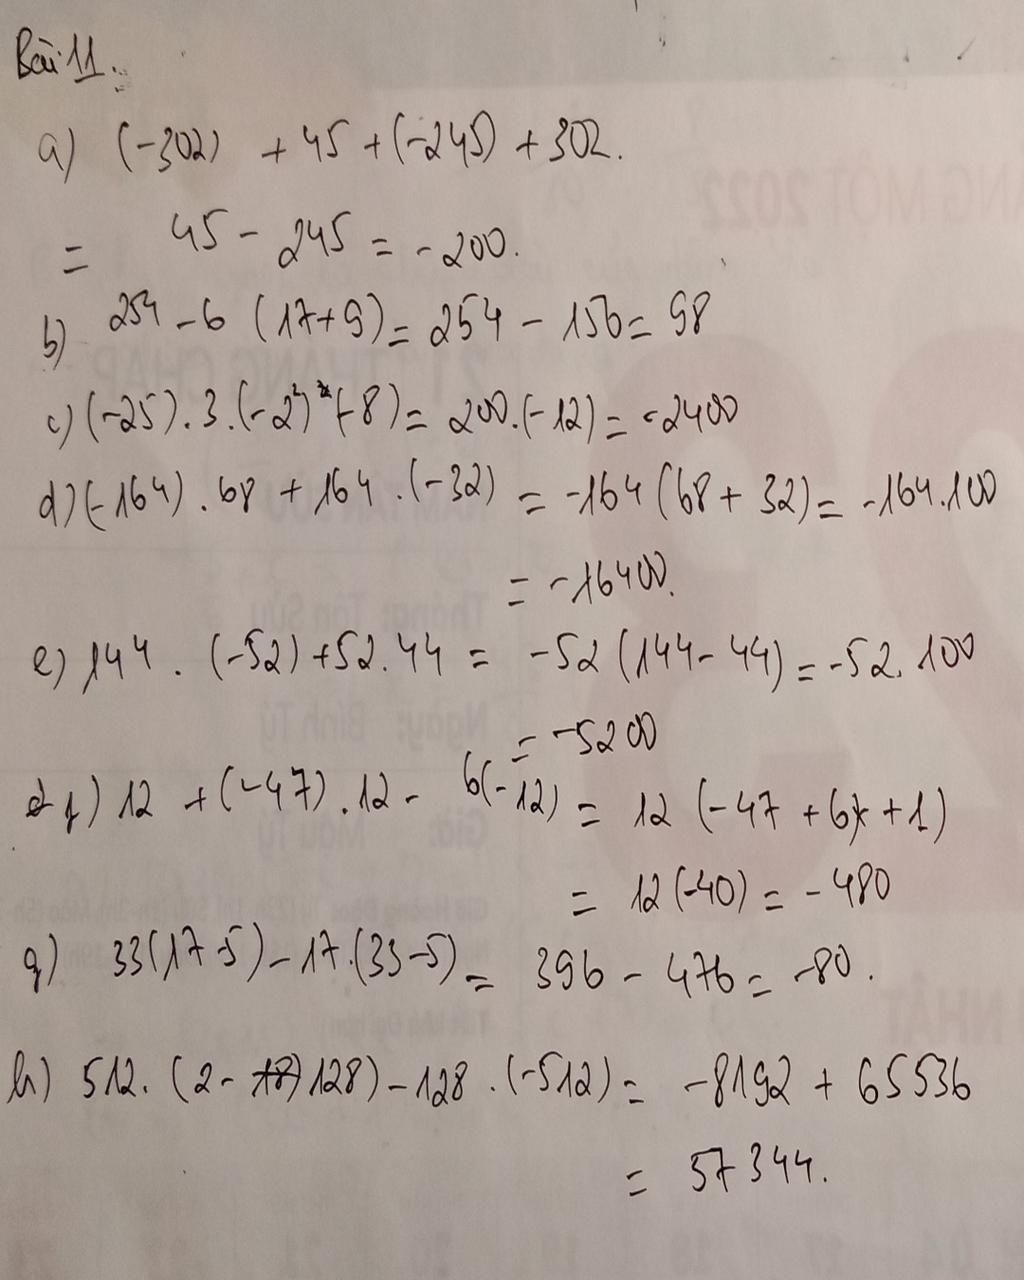 Bài 11.
a) (-302) + 45 + (-245) + 302.
= 45 - 245 = -200.
b) 254 - 6 (17+9) = 254 - 156 = 98
c) (-25).3.(-2²) (-8) = 200.(-12) = -2400
d) (-164) . 68 + 164 . (-32) = -164 (68 + 32) = -164.100
= -16400.
e) 144 . (-52) + 52.44 = -52 (144 - 44) = -52. 100
= -5200
f) 12 + (-47) . 12 - 6(-12) = 12 (-47 + 6 + 1)
= 12 (-40) = -480
g) 33(17-5) - 17.(33-5) = 396 - 476 = -80.
h) 512. (2 - 128) - 128 . (-512) = -8192 + 65536
= 57344.
ĂNG MỘT 2022
THÁNG CHẠP
NĂM TÂN SỬU
Tháng: Tân Sửu
Ngày: Bính Tý
Giờ: Mậu Tý
NHẬT